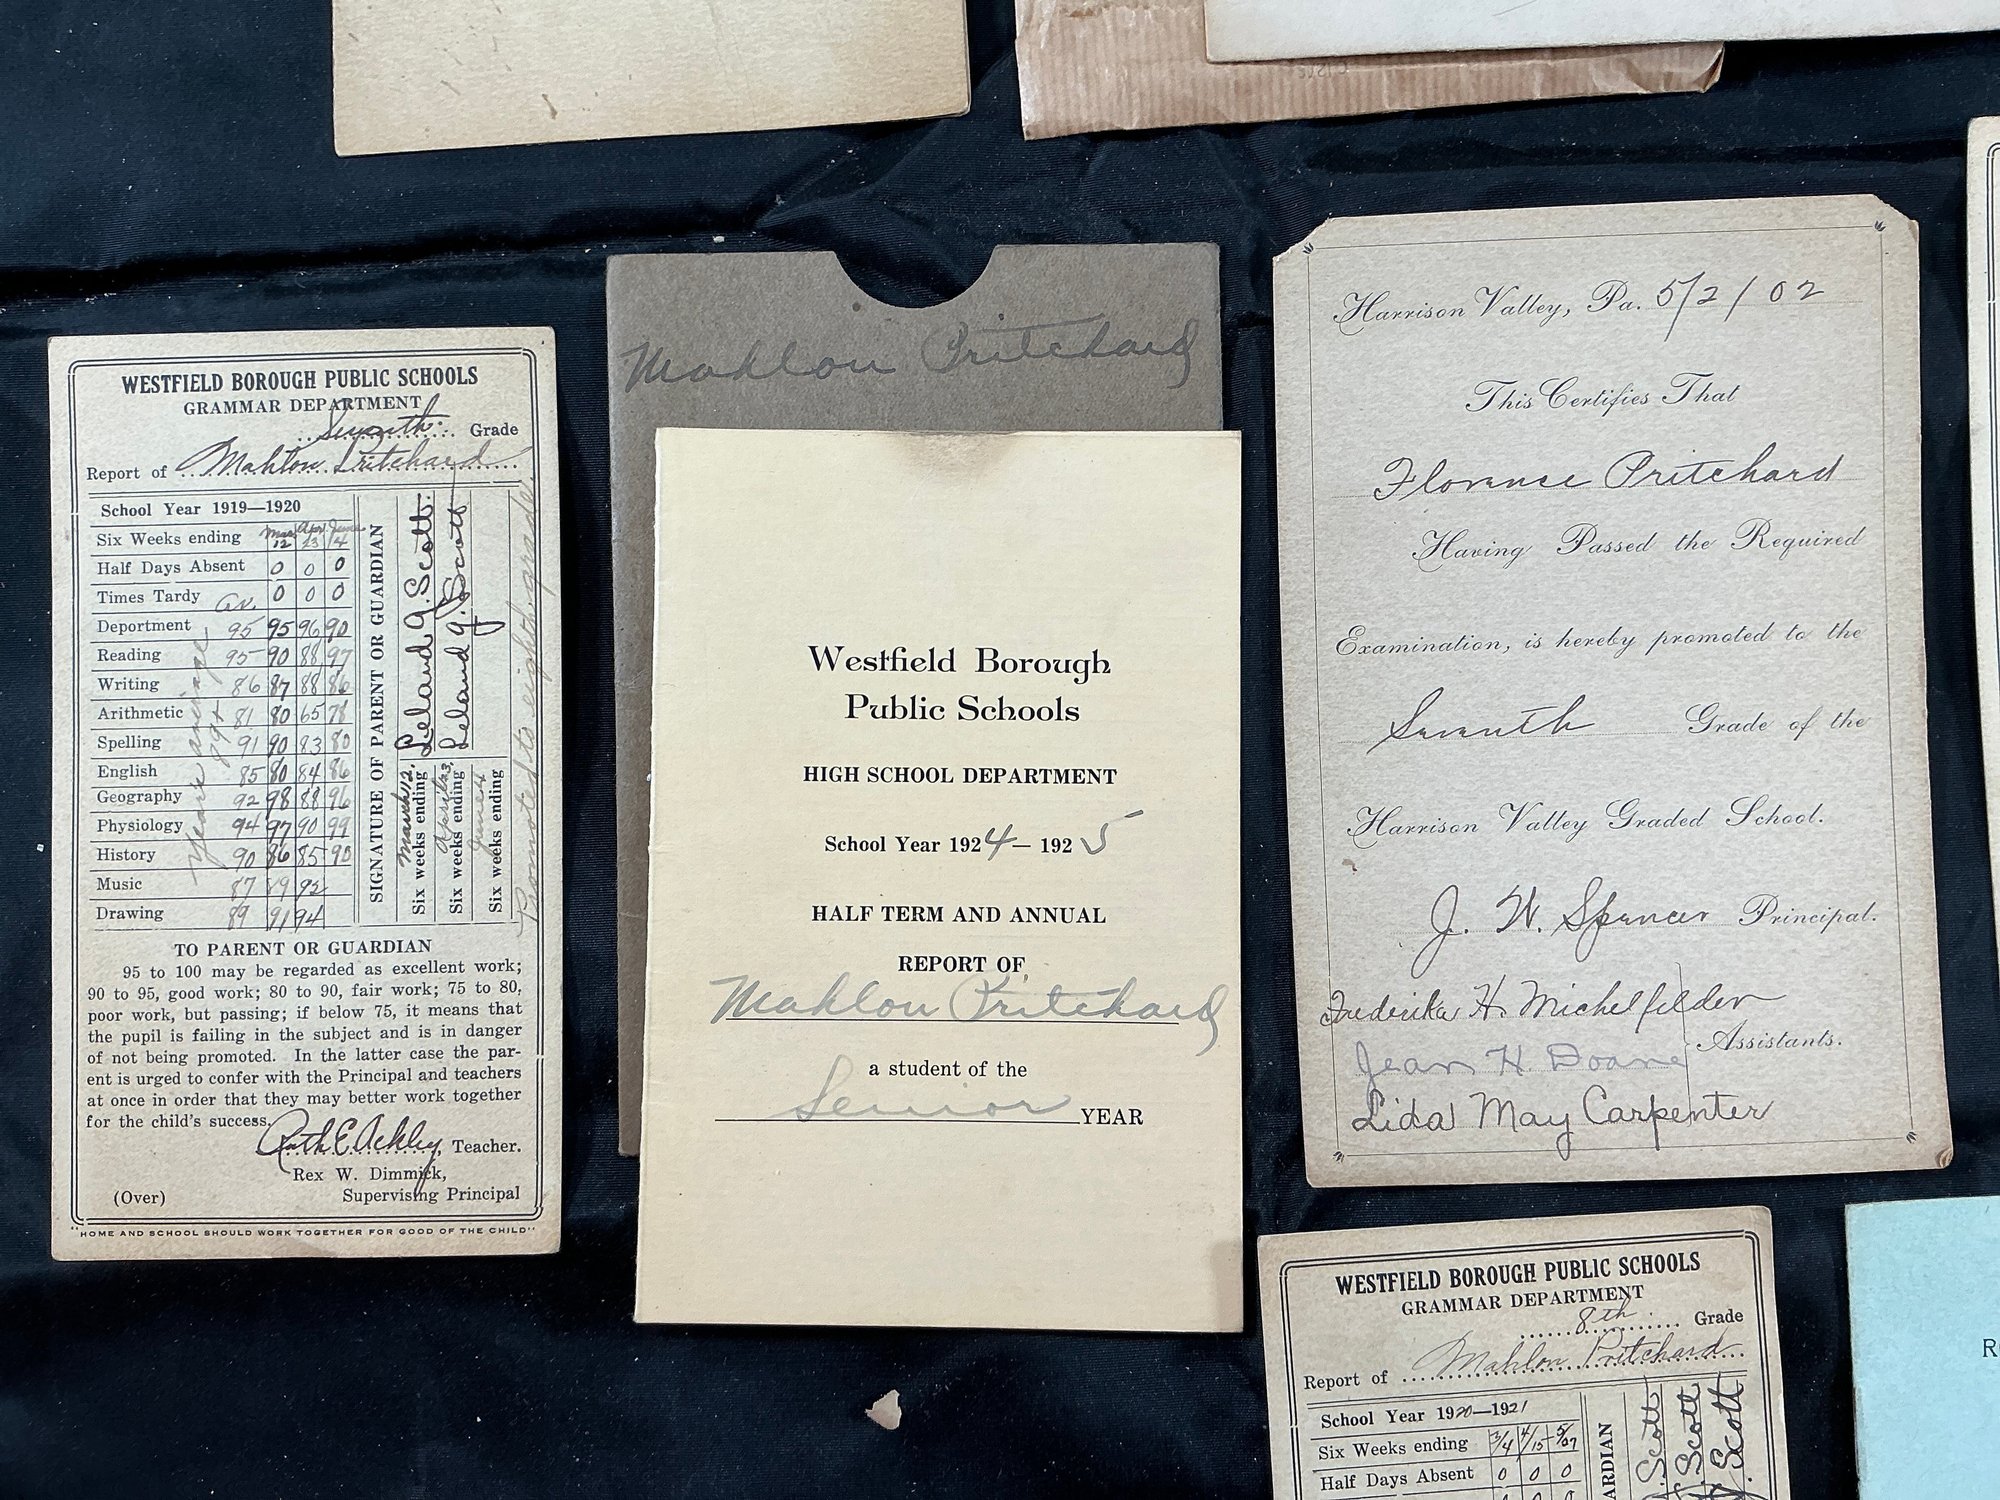 WESTFIELD BOROUGH PUBLIC SCHOOLS
GRAMMAR DEPARTMENT
Seventh Grade
Report of Mahlon Pritchard
School Year 1919—1920
Six Weeks ending Mar 12 Apr 23 June 4
Half Days Absent 0 0 0
Times Tardy av. 0 0 0
Deportment 95 95 96 90
Reading 95 90 88 97
Writing 86 87 88 86
Arithmetic 81 80 65 78
Spelling 91 90 83 80
English 85 80 84 86
Geography 92 98 88 96
Physiology 94 97 90 99
History 90 86 85 90
Music 87 89 92
Drawing 89 91 94
Years average
89+
SIGNATURE OF PARENT OR GUARDIAN
Six weeks ending March 12. Leland J. Scott.
Six weeks ending April 23, Leland J. Scott
Six weeks ending June 4
Promoted to eighth grade.
TO PARENT OR GUARDIAN
95 to 100 may be regarded as excellent work;
90 to 95, good work; 80 to 90, fair work; 75 to 80,
poor work, but passing; if below 75, it means that
the pupil is failing in the subject and is in danger
of not being promoted. In the latter case the par-
ent is urged to confer with the Principal and teachers
at once in order that they may better work together
for the child's success.
Ruth E. Ackley, Teacher.
Rex W. Dimmick,
(Over) Supervising Principal
"HOME AND SCHOOL SHOULD WORK TOGETHER FOR GOOD OF THE CHILD"
Mahlon Pritchard
Westfield Borough
Public Schools
HIGH SCHOOL DEPARTMENT
School Year 1924—1925
HALF TERM AND ANNUAL
REPORT OF
Mahlon Pritchard
a student of the
Senior YEAR
Harrison Valley, Pa. 5/2/02
This Certifies That
Florence Pritchard
Having Passed the Required
Examination, is hereby promoted to the
Seventh Grade of the
Harrison Valley Graded School.
J. W. Spencer Principal.
Frederika H. Michelfelder
Jean H. Doane Assistants.
Lida May Carpenter
WESTFIELD BOROUGH PUBLIC SCHOOLS
GRAMMAR DEPARTMENT
8th Grade
Report of Mahlon Pritchard
School Year 1920—1921
Six Weeks ending 3/4 4/15 5/27
Half Days Absent 0 0 0
ARDIAN
J. Scott
J. Scott
J. Scott
R